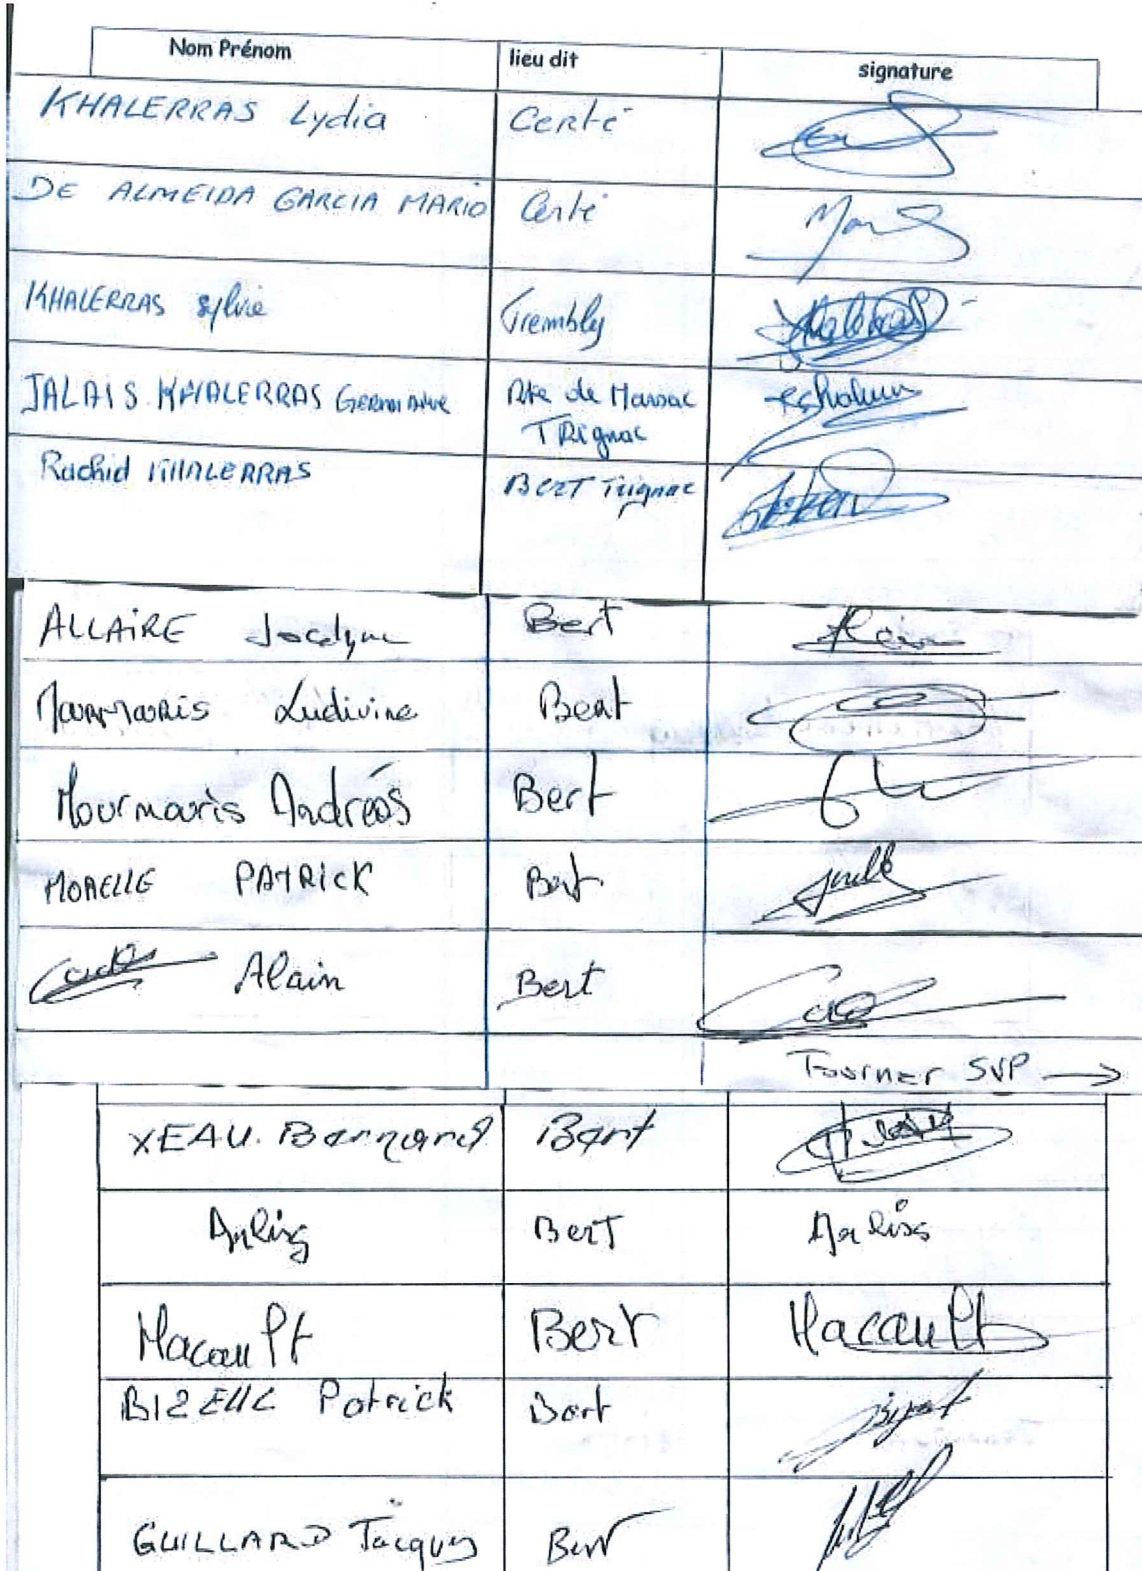 Nom Prénom lieu dit signature
KHALERRAS Lydia Certé
DE ALMEIDA GARCIA MARIO Certé
KHALERRAS Sylvie Trembly
JALAIS KHALERRAS Germaine Rte de Marsac
TRignac
Rachid KHALERRAS BERT Trignac
ALLAIRE Jocelyne Bert
Mourmouris Ludivine Bert
Mourmouris Andréas Bert
MORELLE PATRICK Bert
Alain Bert
Tourner SVP →
XEAU. Bernard Bert
Bert
Macault Bert Macault
BIZEUL Patrick Bert
GUILLARD Jacques Bert